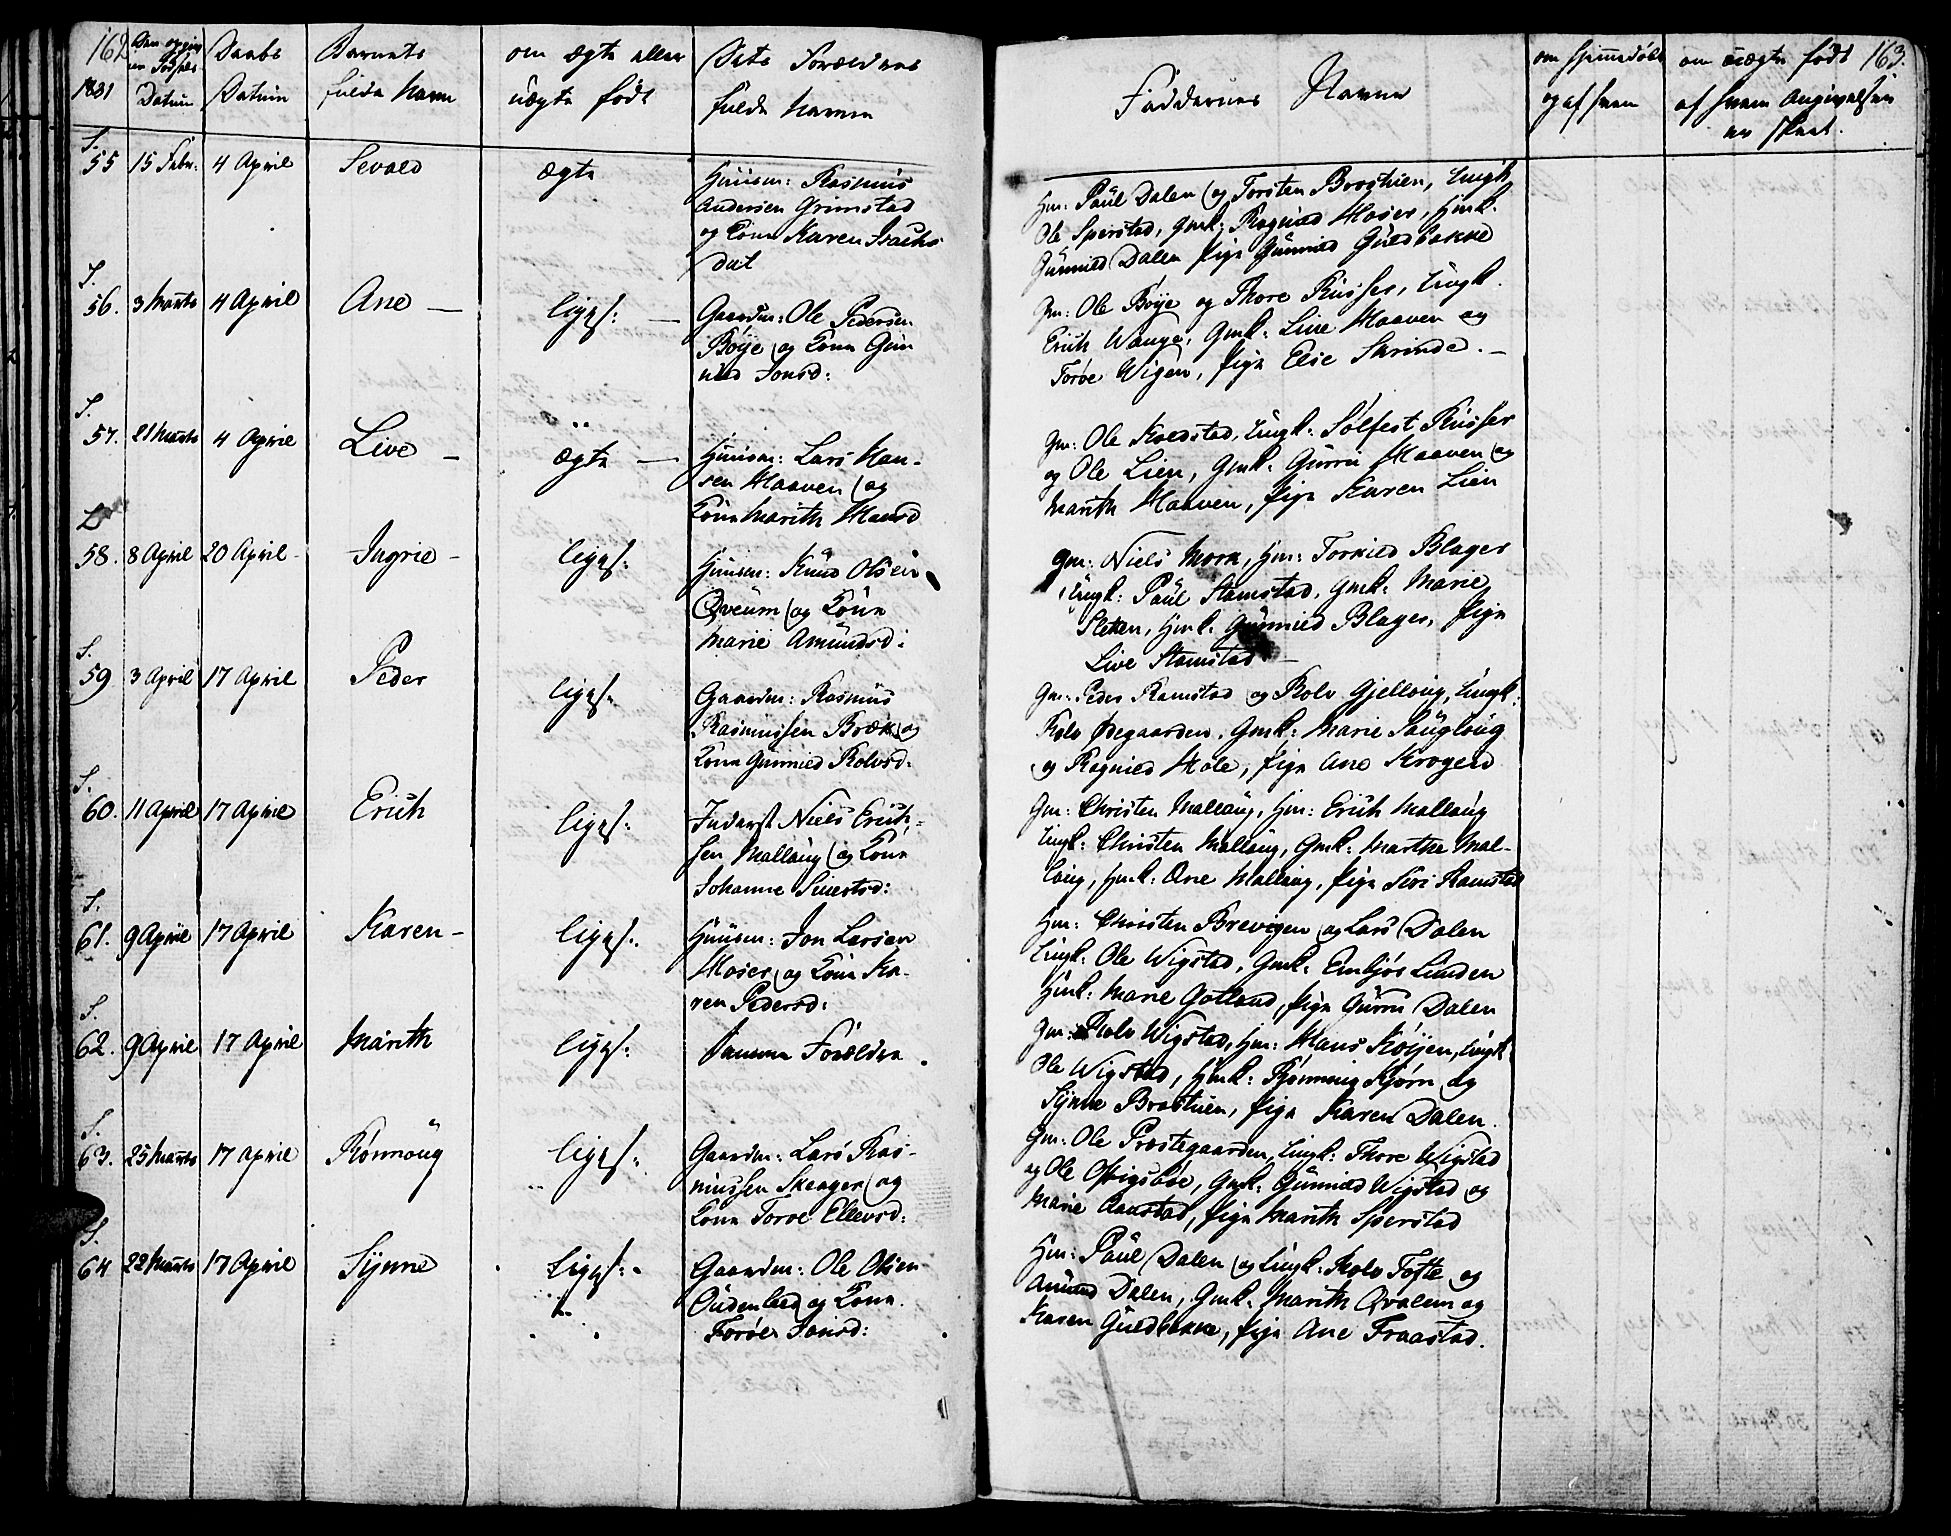 162
Den opgivne Fødsels Datum
Daabs Datum
Barnets fulde Navn
om ægte eller uægte født
Dets Forældres fulde Navne
1831
S.
55 15 Febr: 4 April Sevald ægte Huusm: Rasmus
Andersen Grimstad
og Kone Karen Isachs
dat
S.
56. 3 Marts 4 April Ane — liges: — Gaardm: Ole Pedersen
Bøye og Kone Gun
nild Jonsd:
S.
57. 21 Marts 4 April Live — ægte — Huusm: Lars Han-
sen Haaven og
Kone Marith Hansd
58. 8 April 20 April - Ingrie - liges: Huusm: Knud Olsen
Qveum og Kone
Marie Amundsd:
S.
59 3 April 17 April Peder liges: Gaardm: Rasmus
Rasmussen Bræk og
Kone Gunnild Rolvsd:
S.
60. 11 April 17 April Erich liges: Inderst Niels Erich-
sen Mallaug og Kone
Johanne Siuertsd:
S.
61. 9 April 17 April Karen - liges: Huusm: Jon Larsen
Moser og Kone Ka-
ren Pedersd:
S.
62. 9 April 17 April Marith liges: Samme Forældre.
S.
63. 25 Marts 17 April Rønnoug liges: Gaardm: Lars Ras-
mussen Skeager og
Kone Toroe Ellevsd:
S.
64 22 Marts 17 April Synne liges: Gaardm: Ole Olsen
og Kone
Torøe Jonsd:
Faddernes Navne
om hjemmedøbt og af hvem
om uægte født af hvem Angivelsen er skeet.
163.
Hm: Paul Dalen og Torsten Brostuen, Ungk
Ole Sperstad, Gmk: Ragnild Moser, Hmk.
Gunnild Dalen Pige Gunnild Guldbakke
Gm: Ole Bøye og Thore Russer, Ungk.
Erich Wange, Gmk: Live Haaven og
Torøe Wigen, Pige Elie Skrinde. —
Gm: Ole Kvedstad, Ungk: Sølfest Russer
og Ole Lien, Gmk: Gurru Haaven og
Marith Haaven, Pige Karen Lien
Gm: Niels Mork, Hm: Torkild Blager
Ungk: Paul Stamstad, Gmk: Marie
Sletten, Hmk: Gunnild Blager, Pige
Live Stamstad —
Gm: Peder Ramstad og Rolv Gjelloug, Ungk:
Rolv Ødegaarden, Gmk: Marie Sougloug
og Ragnild Hole, Pige Ane Krogerd
Gm: Christen Mallaug, Hm: Erich Mallaug
Ungk: Christen Mallaug, Gmk: Marthe Mal-
laug, Hmk: Ane Mallaug, Pige Siri Ramstad
Hm: Christen Brevigen og Lars Dalen
Ungk: Ole Wigstad, Gmk: Embjør Lunden
Hmk: Marie Gotland, Pige Gurru Dalen
Gm: Rolv Wigstad, Hm: Hans Køyen, Ungk
Ole Wigstad, Hmk: Rønnoug Kjørn og
Synne Brostuen, Pige Karen Dalen.
Gm: Ole Prestegaarden, Ungk: Thore Wigstad
og Ole Ofrigsbøe, Gmk: Gunnild Wigstad og
Marie Aanstad, Pige Marith Sperstad
Hm: Paul Dalen og Ungk: Rolv Tofte og
Amund Dalen, Gmk: Marith Qvalem og
Karen Guldbakke, Pige Ane Fraastad.